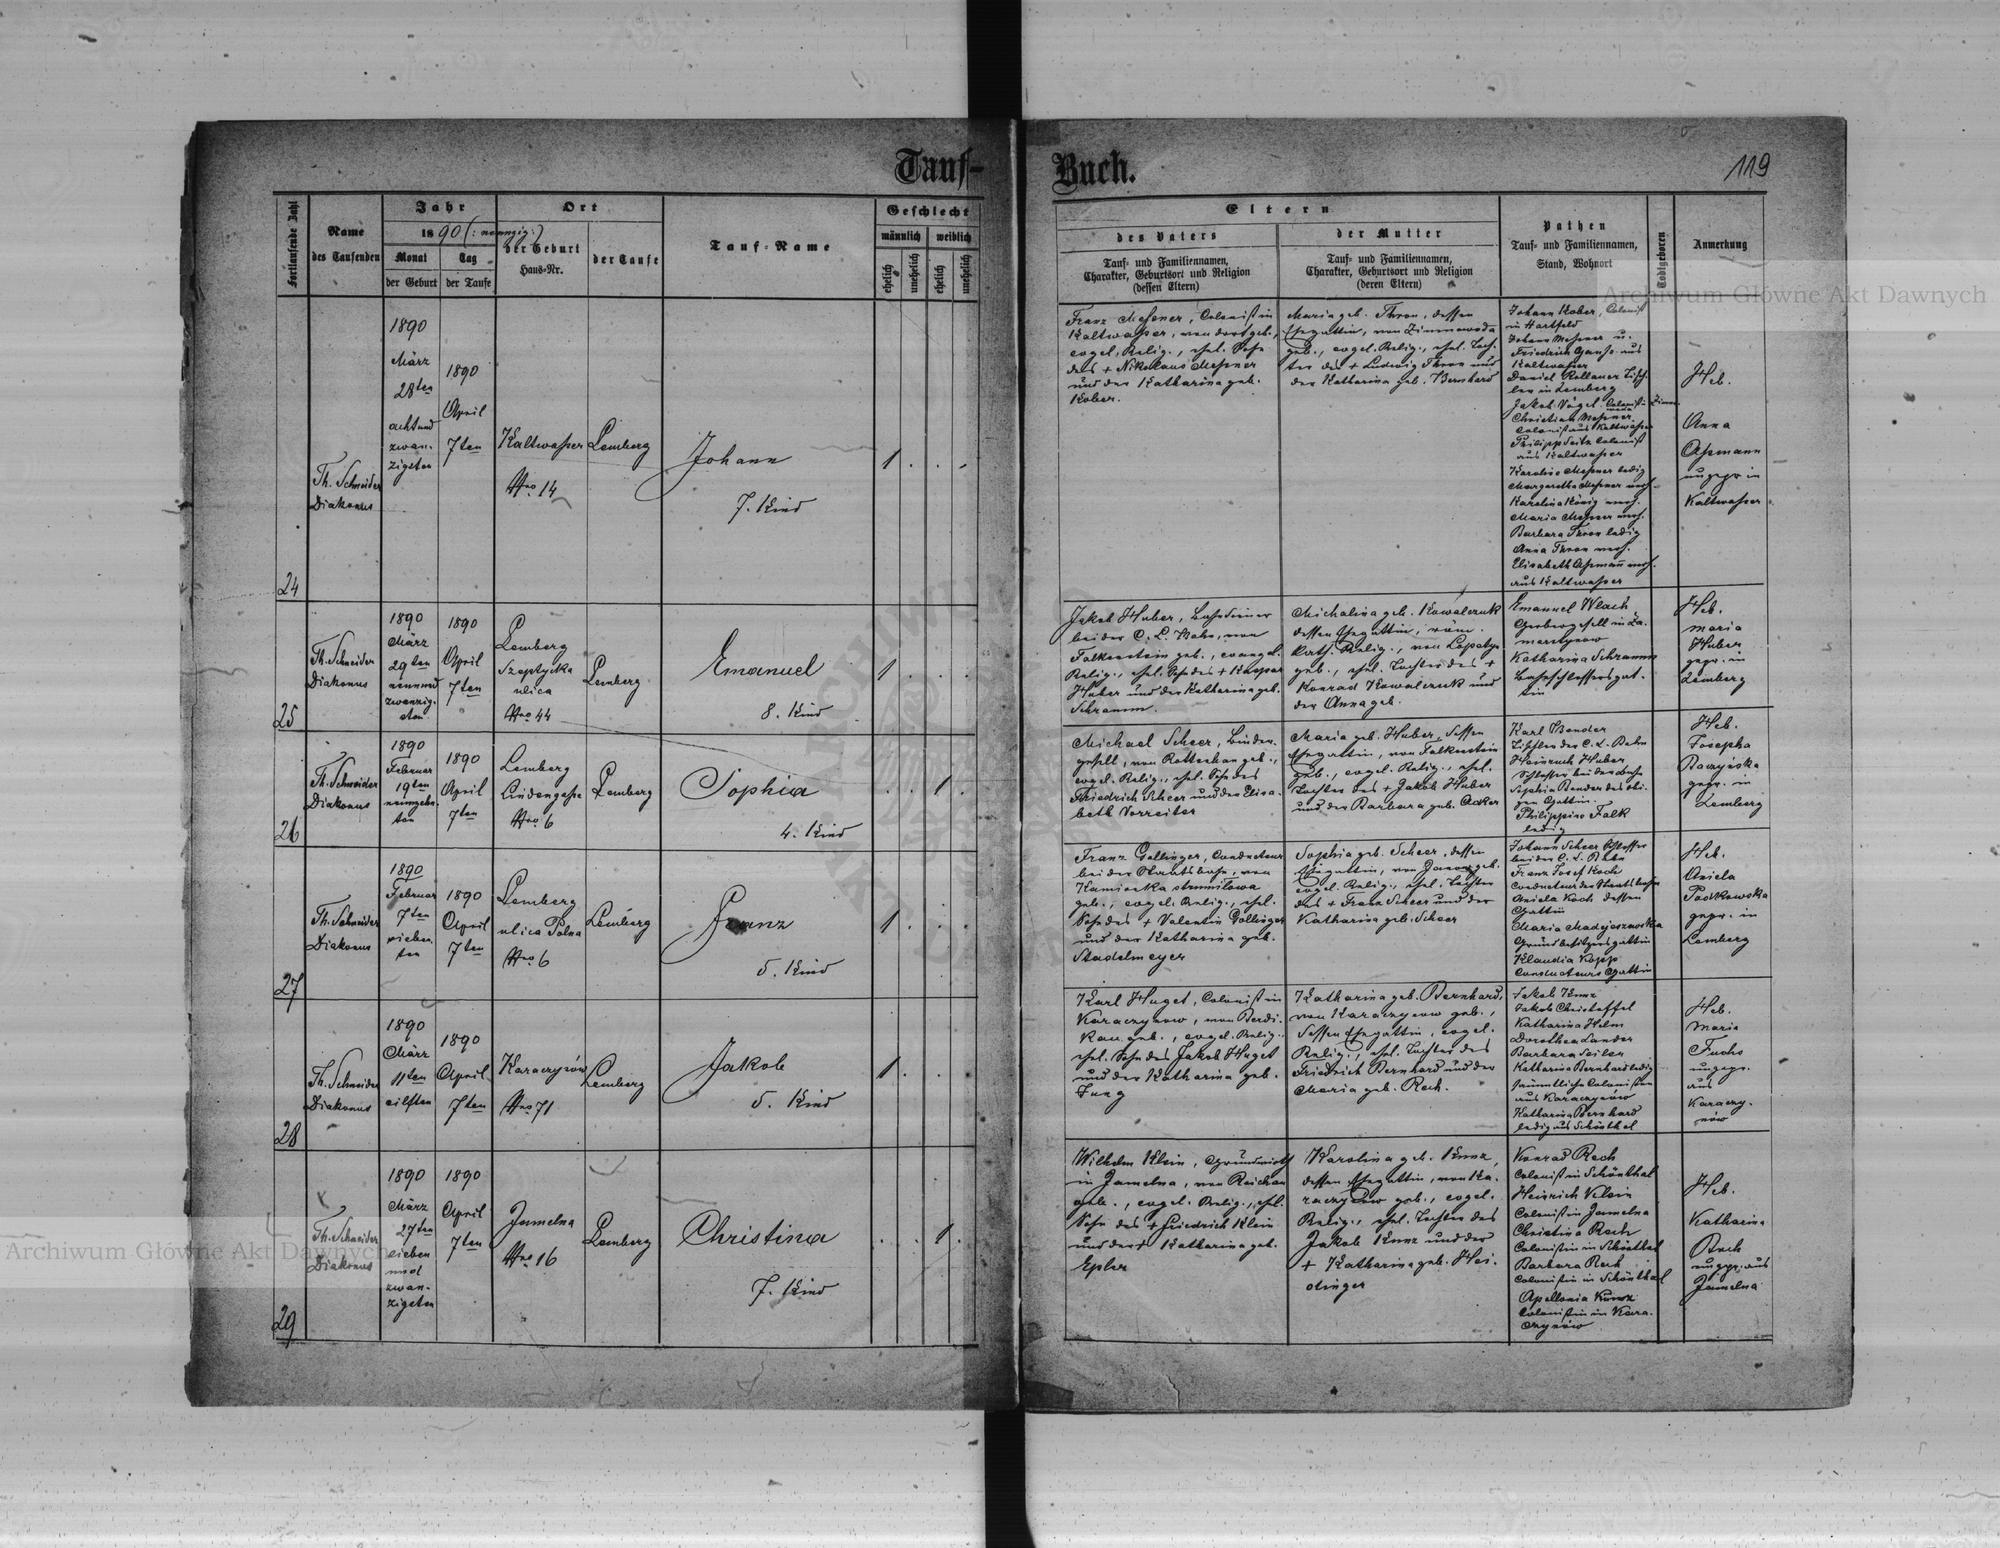 Tauf-
Buch.
119
Fortlaufende Zahl
Name
des Taufenden
Jahr
1890 (: neunzig :)
Monat
der Geburt
Tag
der Taufe
Ort
der Geburt
Haus-Nr.
der Taufe
Tauf-Name
Geschlecht
männlich
weiblich
ehelich
unehelich
ehelich
unehelich
Eltern
des Vaters
Tauf- und Familiennamen,
Charakter, Geburtsort und Religion
(dessen Eltern)
der Mutter
Tauf- und Familiennamen,
Charakter, Geburtsort und Religion
(deren Eltern)
Pathen
Tauf- und Familiennamen,
Stand, Wohnort
Todtgeboren
Anmerkung
24
Th. Schneider
Diakonus
1890
März
28ten
acht und
zwan-
zigsten
1890
April
7ten
Kaltwasser
Nro 14
Lemberg
Johann
7. Kind
1
Franz Meßner, Colonist in
Kaltwasser, von dort geb.,
evgel. Relig., ehel. Sohn
des + Nikolaus Meßner
und der Katharina geb.
Kober.
Maria geb. Thron, dessen
Ehegattin, von Zimnawoda
geb., evgel. Relig., ehel. Toch-
ter des + Ludwig Thron und
der Katharina geb. Bernhard
Johann Kober, Colonist
in Hartfeld
Johann Meßner u.
Friedrich Ganß aus
Kaltwasser
Daniel Kollauer Tisch-
ler in Lemberg
Jakob Vogel Colonist in Zimna
woda
Christian Meßner
Colonist aus Kaltwasser
Philipp Seitz Colonist
aus Kaltwasser
Karoline Meßner ledig
Margaretha Meßner verh.
Karolina König verh.
Maria Meßner verh.
Barbara Thron ledig
Anna Thron verh.
Elisabeth Aßmann verh.
aus Kaltwasser
Heb.
Anna
Aßmann
ungepr. in
Kaltwasser
25
Th. Schneider
Diakonus
1890
März
29ten
neunund
zwanzig-
sten
1890
April
7ten
Lemberg
Szeptycka
ulica
Nro 44
Lemberg
Emanuel
8. Kind
1
Jakob Huber, Bahndiener
bei der C. L. Bahn, von
Falkenstein geb., evangel.
Relig., ehel. Sohn des + Kaspar
Huber und der Katharina geb.
Schramm.
Michalina geb. Kowalczuk
dessen Ehegattin, röm.
kath. Relig., von Lopatyn
geb., ehel. Tochter des +
Konrad Kowalczuk und
der Anna geb.
Emanuel Wlach
Gerbergesell in Za-
marstynow
Katharina Schramm
Bahnschlossersgat-
tin
Heb.
Maria
Huber
gepr. in
Lemberg
26
Th. Schneider
Diakonus
1890
Februar
19ten
neunzehn-
ten
1890
April
7ten
Lemberg
Lindengasse
Nro 6
Lemberg
Sophia
4. Kind
1
Michael Scheer, Binder-
gesell, von Rottenhan geb.,
evgel. Relig., ehel. Sohn des
Friedrich Scheer und der Elisa-
beth Vorreiter
Maria geb. Huber, dessen
Ehegattin, von Falkenstein
geb., evgel. Relig., ehel.
Tochter des + Jakob Huber
und der Barbara geb. Acker
Karl Bender
Tischler der C. L. Bahn
Heinrich Huber
Schlosser bei der Bahn
Sophia Bender des obi-
gen Gattin
Philippine Falk
ledig
Heb.
Josepha
Baczyńska
gepr. in
Lemberg
27
Th. Schneider
Diakonus
1890
Februar
7ten
sieben-
ten
1890
April
7ten
Lemberg
ulica Polna
Nro 6
Lemberg
Franz
5. Kind
1
Franz Gollinger, Conducteur
bei der Staatsbahn, von
Kamionka strumiłowa
geb., evgel. Relig., ehel.
Sohn des + Valentin Gollinger
und der Katharina geb.
Stadelmeyer
Sophia geb. Scheer, dessen
Ehegattin, von Janow geb.
evgel. Relig., ehel. Tochter
des + Franz Scheer und der
Katharina geb. Scheer
Johann Scheer Schlosser
bei der C. L. Bahn
Franz Josef Koch
Conducteur der Staatsbahn
Aniela Koch dessen
Gattin
Maria Madyjaszewska
Grundbesitzersgattin
Klaudia Kopp
Conducteurs Gattin
Heb.
Aniela
Podkowska
gepr. in
Lemberg
28
Th. Schneider
Diakonus
1890
März
11ten
eilften
1890
April
7ten
Karaczynów
Nro 71
Lemberg
Jakob
5. Kind
1
Karl Huget, Colonist in
Karaczynow, von Berdi-
kau geb., evgel. Relig.,
ehel. Sohn des Jakob Huget
und der Katharina geb.
Jung
Katharina geb. Bernhard,
von Karaczynow geb.,
dessen Ehegattin, evgel.
Relig., ehel. Tochter des
Friedrich Bernhard und der
Maria geb. Rech.
Jakob Kunz
Jakob Christoffel
Katharina Helm
Dorothea Lander
Barbara Seiler
Katharina Bernhard ledig
sämmtliche Colonisten
aus Karaczynów
Katharina Bernhard
ledig aus Schönthal
Heb.
Maria
Fuchs
ungepr.
aus
Karaczy-
nów
29
Th. Schneider
Diakonus
1890
März
27ten
sieben
und
zwan-
zigsten
1890
April
7ten
Jamelna
Nro 16
Lemberg
Christina
7. Kind
1
Wilhelm Klein, Grundwirth
in Jamelna, von Reichau
geb., evgel. Relig., ehel.
Sohn des + Friedrich Klein
und der + Katharina geb.
Epler
Karolina geb. Kunz,
dessen Ehegattin, von Ka-
raczynow geb., evgel.
Relig., ehel. Tochter des
Jakob Kunz und der
+ Katharina geb. Hei-
dinger
Konrad Rech
Colonist in Schönthal
Heinrich Klein
Colonist in Jamelna
Christina Rech
Colonistin in Schönthal
Barbara Rech
Colonistin in Schönthal
Apollonia Kunz
Colonistin in Kara-
czynów
Heb.
Katharina
Rech
ungepr. aus
Jamelna
Archiwum Główne Akt Dawnych
Archiwum Główne Akt Dawnych